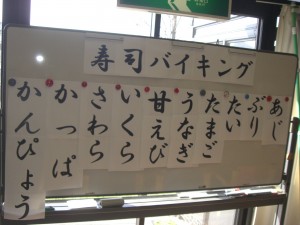 寿司バイキング
あじ
ぶり
たい
たまご
うなぎ
甘えび
いくら
さわら
かっぱ
かんぴょう